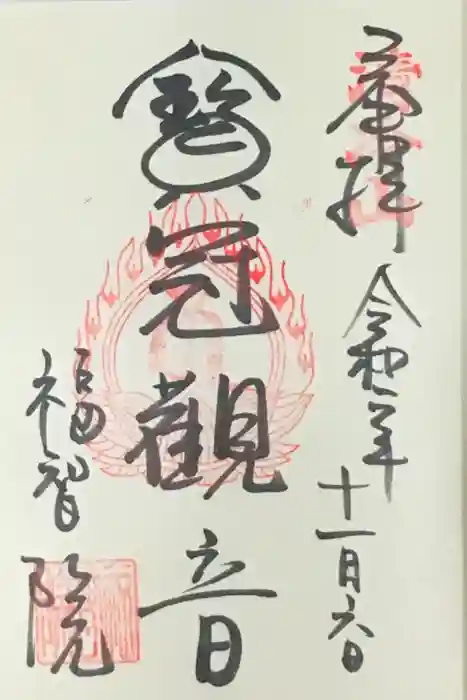 奉拝 令和年十一月六日
寶冠觀音
福智院